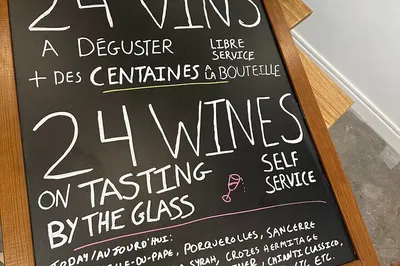 24 VINS
A DÉGUSTER LIBRE SERVICE
+ DES CENTAINES À LA BOUTEILLE
24 WINES
ON TASTING BY THE GLASS
SELF SERVICE
TODAY/AUJOURD'HUI:
-DU-PAPE, PORQUEROLLES, SANCERRE
SYRAH, CROZES HERMITAGE
CHIANTI CLASSICO,
ETC. ETC.